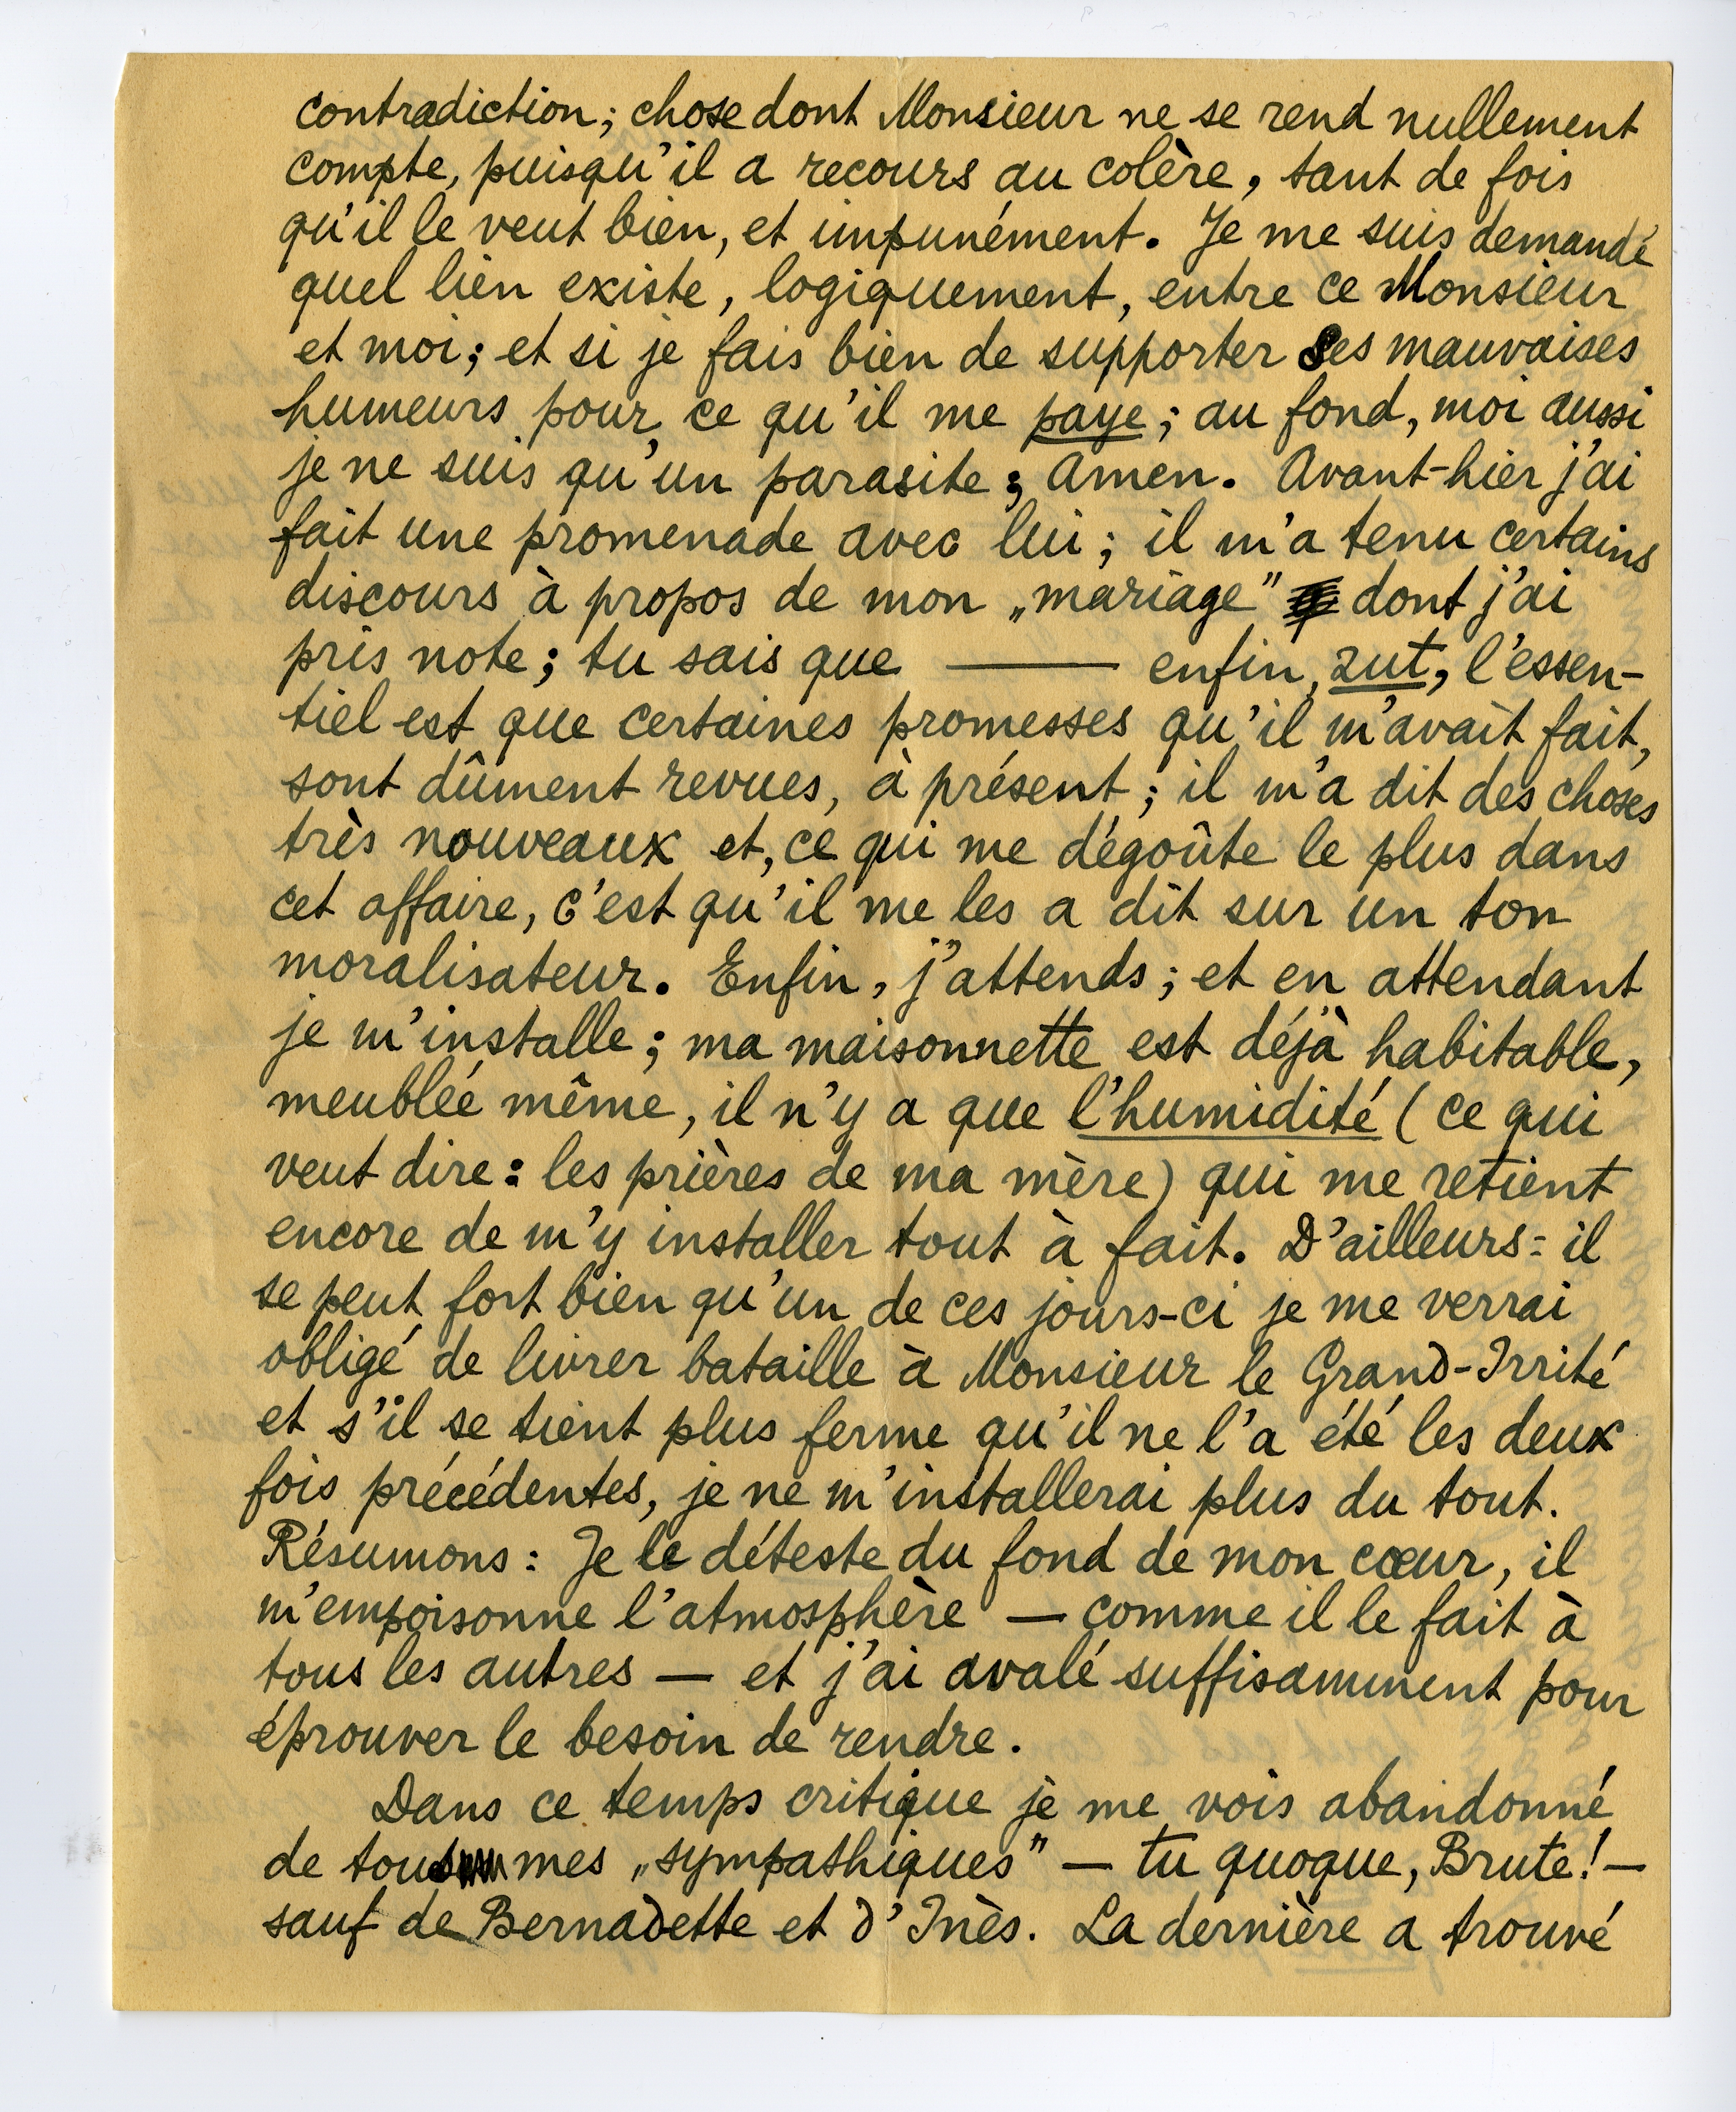 contradiction; chose dont Monsieur ne se rend nullement
compte, puisqu'il a recours au colère, tant de fois
qu'il le veut bien, et impunément. Je me suis demandé
quel lien existe, logiquement, entre ce Monsieur
et moi; et si je fais bien de supporter ses mauvaises
humeurs pour ce qu'il me paye; au fond, moi aussi
je ne suis qu'un parasite; Amen. Avant-hier j'ai
fait une promenade avec lui; il m'a tenu certains
discours à propos de mon „mariage” dont j'ai
pris note; tu sais que ——— enfin, zut, l'essen-
tiel est que certaines promesses qu'il m'avait fait,
sont dûment revues, à présent; il m'a dit des choses
très nouveaux et, ce qui me dégoûte le plus dans
cet affaire, c'est qu'il me les a dit sur un ton
moralisateur. Enfin, j'attends; et en attendant
je m'installe; ma maisonnette est déjà habitable,
meublée même, il n'y a que l'humidité (ce qui
veut dire: les prières de ma mère) qui me retient
encore de m'y installer tout à fait. D'ailleurs: il
se peut fort bien qu'un de ces jours-ci je me verrai
obligé de livrer bataille à Monsieur le Grand-Irrité
et s'il se tient plus ferme qu'il ne l'a été les deux
fois précédentes, je ne m'installerai plus du tout.
Résumons: Je le déteste du fond de mon cœur, il
m'empoisonne l'atmosphère — comme il le fait à
tous les autres — et j'ai avalé suffisamment pour
éprouver le besoin de rendre.
Dans ce temps critique je me vois abandonné
de tous mes „sympathiques” — tu quoque, Brute! —
sauf de Bernadette et d'Inès. La dernière a trouvé